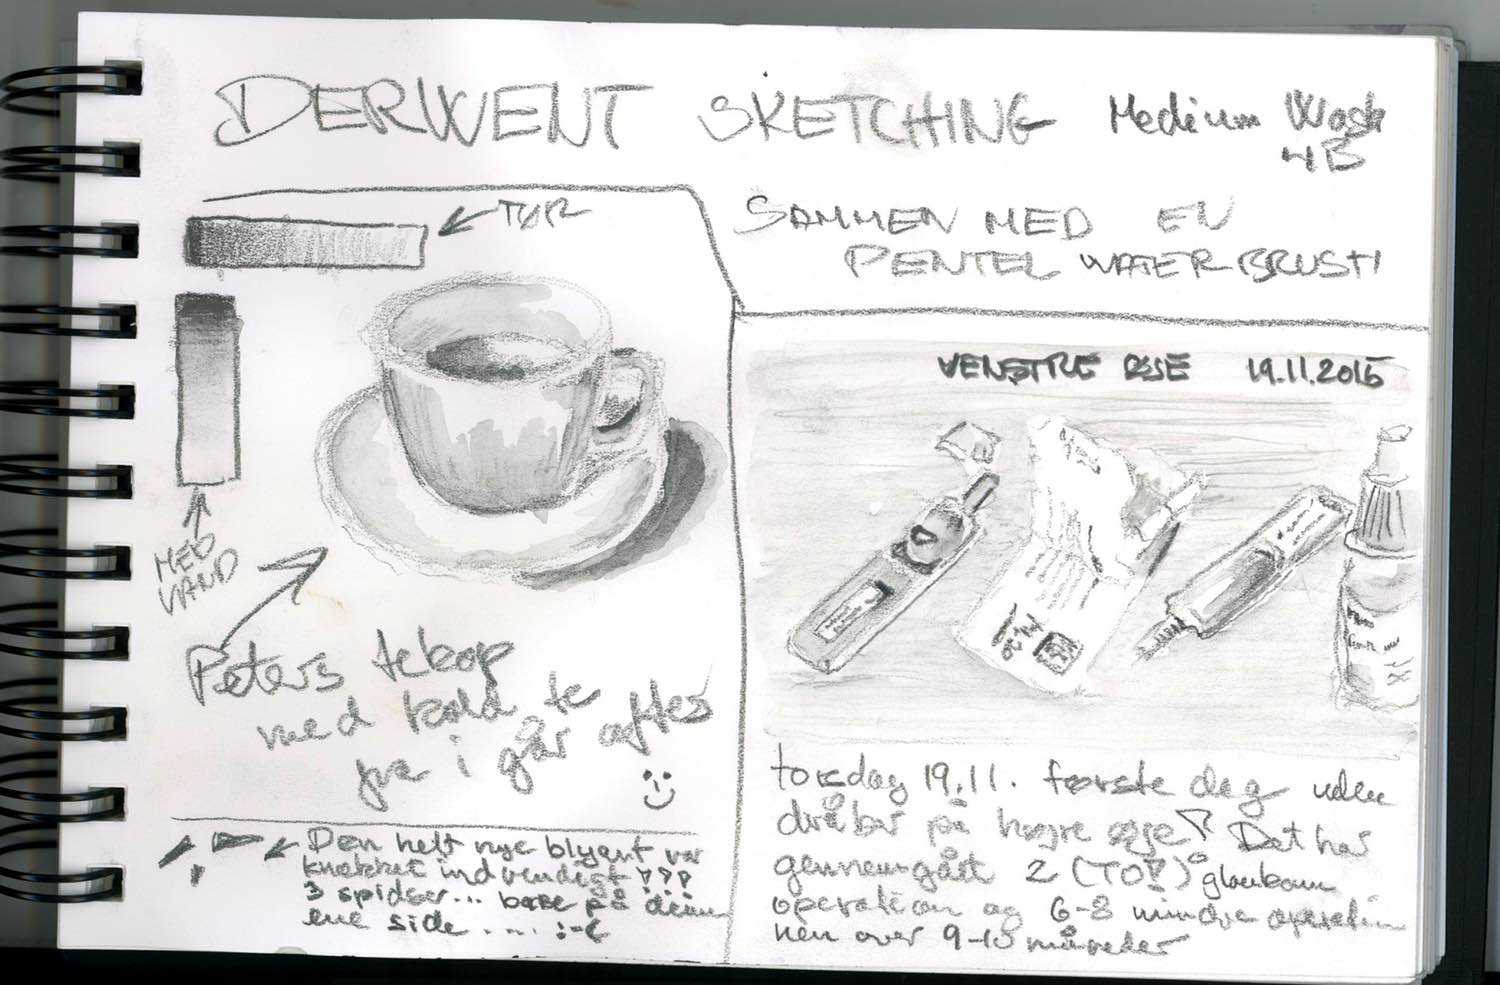 DERWENT SKETCHING Medium Wash
4B
SAMMEN MED EN
PENTEL WATERBRUSH
TØR
MED
VAND
Peters tekop
med kold te
fra i går aftes
Den helt nye blyant var
knækket indvendigt!!!
3 spidser... bare på denne
ene side .... :-(
VENSTRE ØJE 19.11.2015
torsdag 19.11. første dag uden
dråber på højre øje! Det har
gennemgået 2 (TO!) glaukom
operation og 6-8 mindre operatio
nen over 9-10 måneder